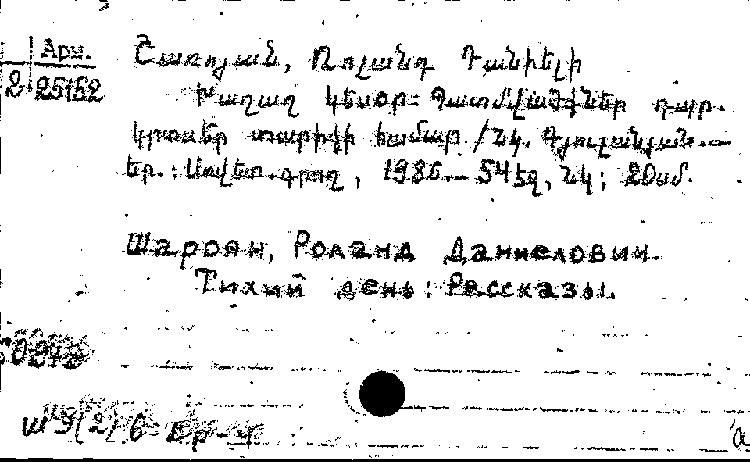 Арм.
2 25152
Շառոյան, Ռոլանդ Դանիելի
Խաղաղ կեսօր: Պատմվածքներ դպր.
կրտսեր տարիքի համար /Նկ. Գյուլանյան.—
Եր.: Սովետ. գրող, 1986.— 54 էջ, նկ; 20սմ.
Шароян, Роланд Даниелович.
Тихий день: Рассказы.